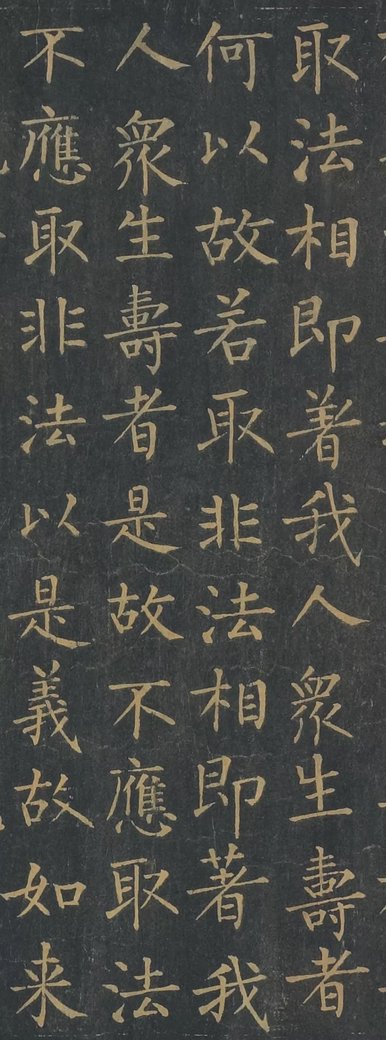 取法相即著我人衆生壽者
何以故若取非法相即著我
人衆生壽者是故不應取法
不應取非法以是義故如来